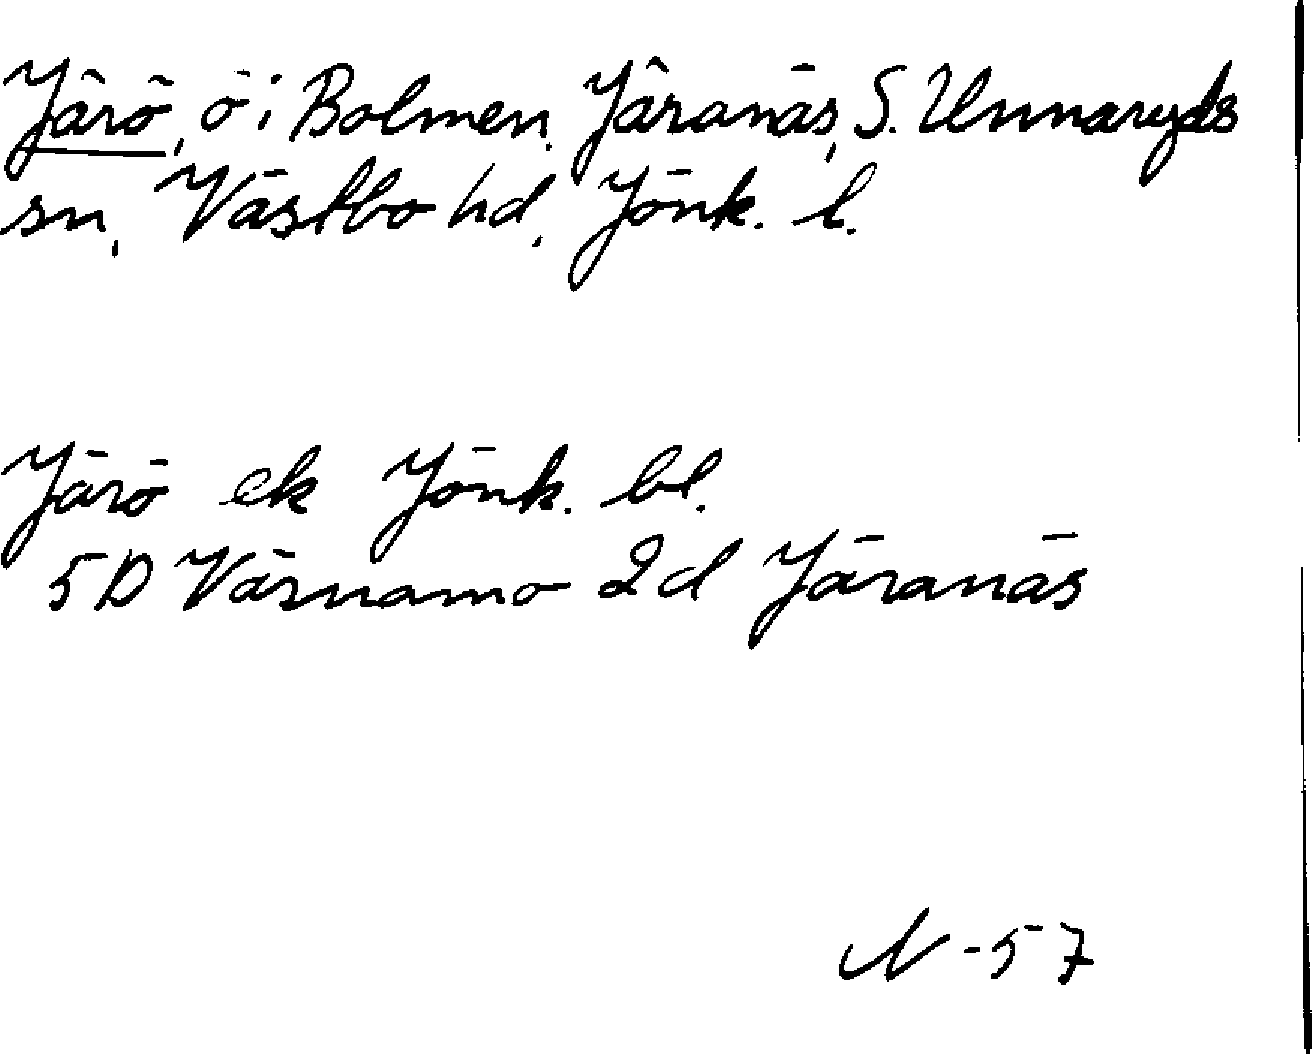 Järö, ö i Bolmen. Järanäs, S. Unnaryds
sn, Västbo hd, Jönk. l.
Järö ek Jönk. bl.
5D Värnamo 2d Järanäs
N-57